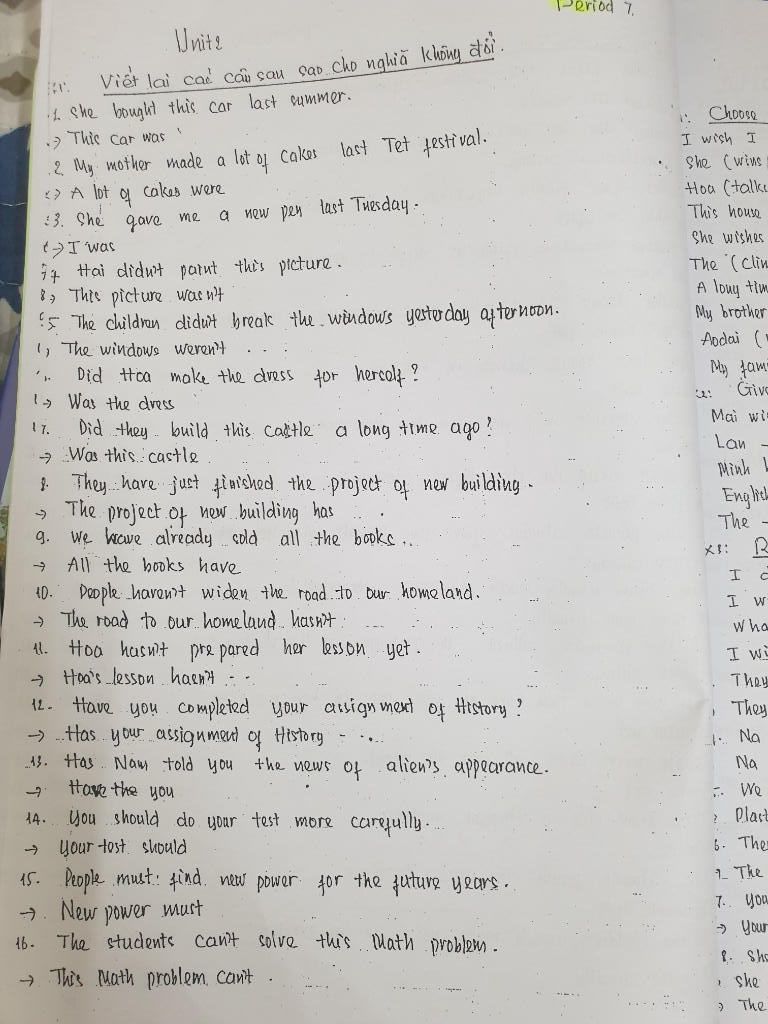 Period 7.
Unit 2
Viết lại các câu sau sao cho nghĩa không đổi.
1. She bought this car last summer.
→ This car was
2. My mother made a lot of cakes last Tet festival.
→ A lot of cakes were
3. She gave me a new pen last Tuesday.
→ I was
4. Hai didn't paint this picture.
→ This picture wasn't
5. The children didn't break the windows yesterday afternoon.
→ The windows weren't . . .
Did Hoa make the dress for herself?
→ Was the dress
7. Did they build this castle a long time ago?
→ Was this castle
8. They have just finished the project of new building.
→ The project of new building has . .
9. We have already sold all the books...
→ All the books have
10. People haven't widen the road to our homeland.
→ The road to our homeland hasn't
11. Hoa hasn't prepared her lesson yet.
→ Hoa's lesson hasn't - -
12. Have you completed your assignment of History?
→ Has your assignment of History - ..
13. Has Nam told you the news of alien's appearance.
→ Have the you
14. You should do your test more carefully.
→ Your test should
15. People must find new power for the future years.
→ New power must
16. The students can't solve this Math problem.
→ This Math problem can't .
Choose
I wish I
She (wins
Hoa (talk
This house
She wishes
The (clin
A long tim
My brother
Aodai (
My fam
Give
Mai wi
Lan -
Minh
English
The -
I
I w
Wha
I wi
They
They
Na
Na
We
Plast
6. The
→ The
7. you
→ your
8. She
She
→ The